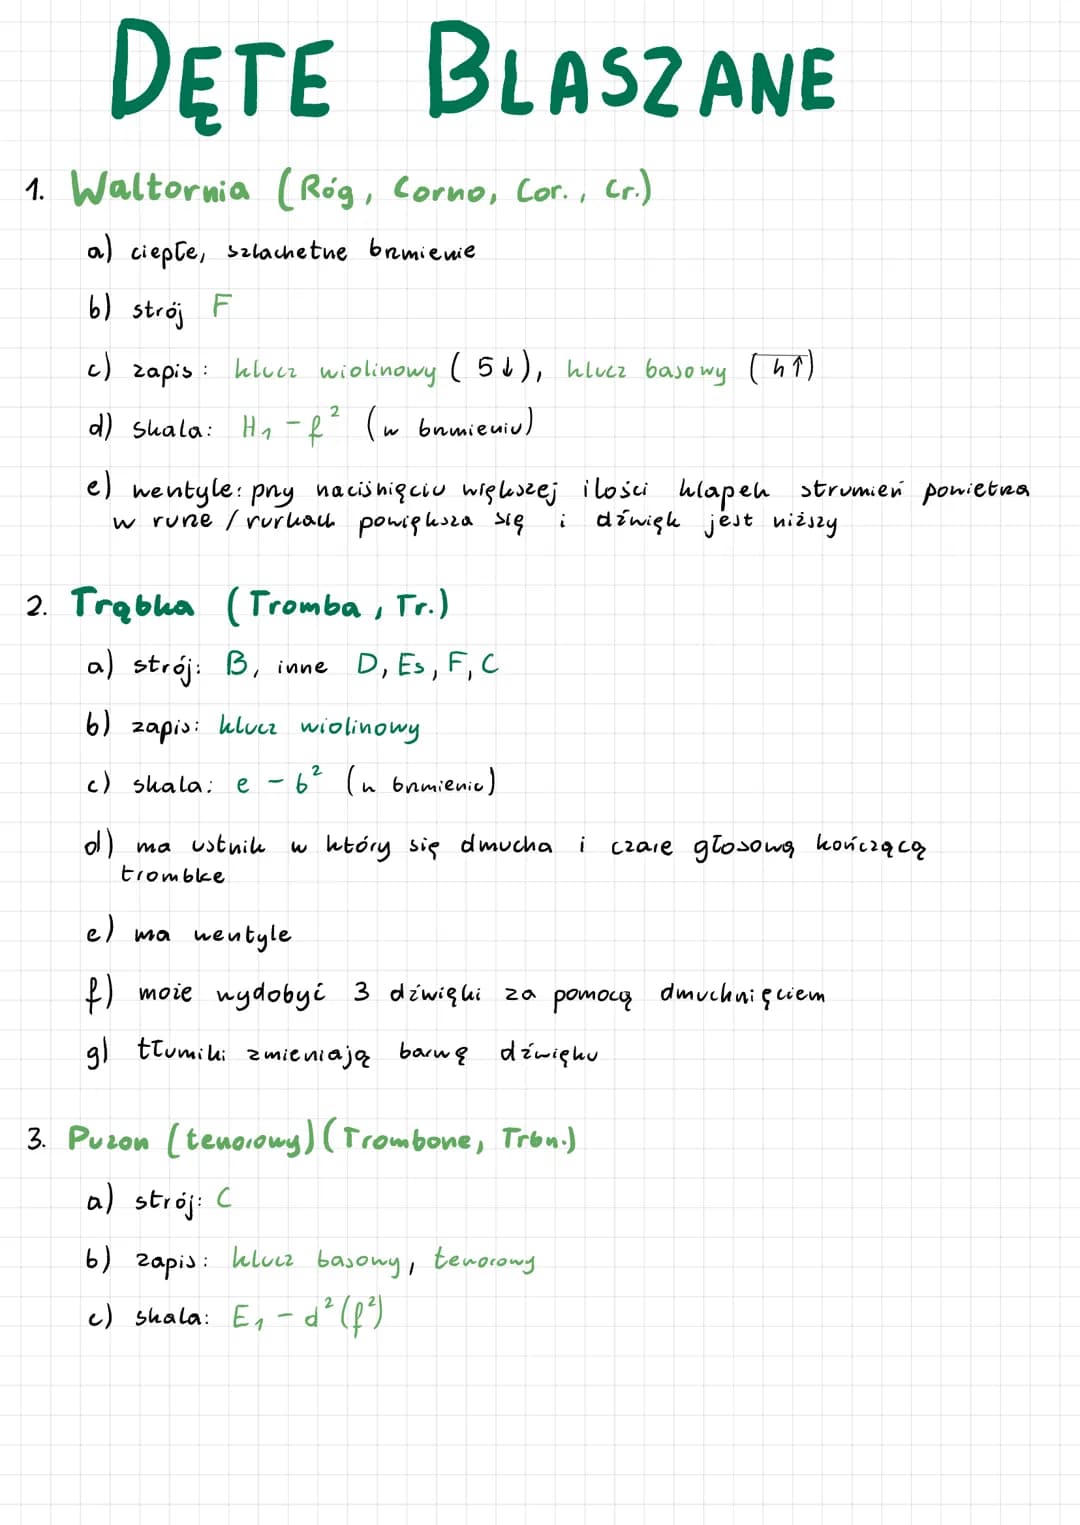 DĘTE BLASZANE
1. Waltornia (Róg, Corno, Cor., Cr.)
a) ciepłe, szlachetne brzmienie
b) strój F
c) zapis: klucz wiolinowy (5↓), klucz basowy (4↑)
d) skala: H₁ - f² (w brzmieniu)
e) wentyle: przy naciśnięciu większej ilości klapek strumień powietrza
w rurze / rurkach powiększa się i dźwięk jest niższy
2. Trąbka (Tromba, Tr.)
a) strój: B, inne D, Es, F, C
b) zapis: klucz wiolinowy
c) skala: e - b² (w brzmieniu)
d) ma ustnik w który się dmucha i czare głosową kończącą
trombke
e) ma wentyle
f) może wydobyć 3 dźwięki za pomocą dmuchnięciem
g) tłumiki zmieniają barwę dźwięku
3. Puzon (tenorowy) (Trombone, Trbn.)
a) strój: C
b) zapis: klucz basowy, tenorowy
c) skala: E₁ - d² (f²)